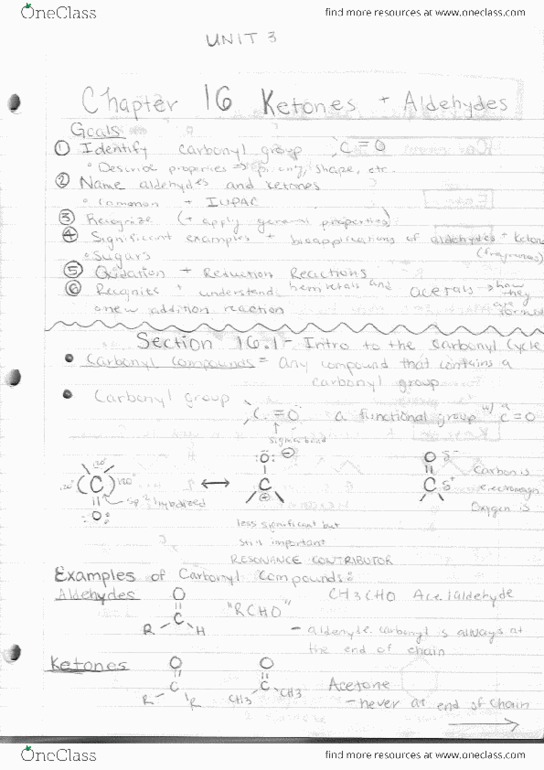 OneClass
find more resources at www.oneclass.com
UNIT 3
Chapter 16 Ketones + Aldehydes
Goals
① Identify carbonyl group C=O
• Describe properties ⇒ shape, etc.
② Name aldehydes and ketones
• common + IUPAC
③ Recognize (+ apply general properties)
④ Significant examples + bioapplications of aldehydes + ketones
(fragrances)
• Sugars
⑤ Oxidation + Reduction Reactions
⑥ Recognize understand hemiketals and acetals - show
new addition reaction
Section 16.1 - Intro to the Carbonyl
• Carbonyl compounds = any compound that contains a
carbonyl group
• Carbonyl group
C=O a functional group w/ C=O
sigma bond
120°
sp2
less significant but
still important
RESONANCE CONTRIBUTOR
O δ-
C δ+
Carbon is
Oxygen is
Examples of Carbonyl Compounds:
Aldehydes
O
C
R H
"RCHO"
CH3CHO Acetaldehyde
- aldehyde carbonyl is always at
the end of chain
Ketones
O
C
R R
O
C
CH3 CH3
Acetone
- never at end of chain
OneClass
find more resources at www.oneclass.com